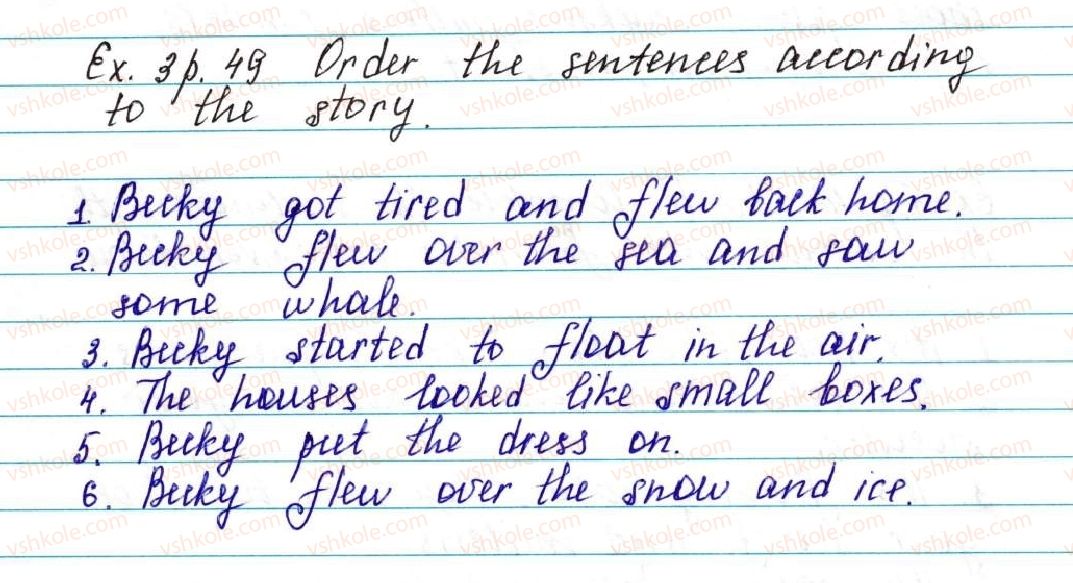 Ex. 3 p. 49 Order the sentences according
to the story.
1. Becky got tired and flew back home.
2. Becky flew over the sea and saw
some whale.
3. Becky started to float in the air.
4. The houses looked like small boxes.
5. Becky put the dress on.
6. Becky flew over the snow and ice.